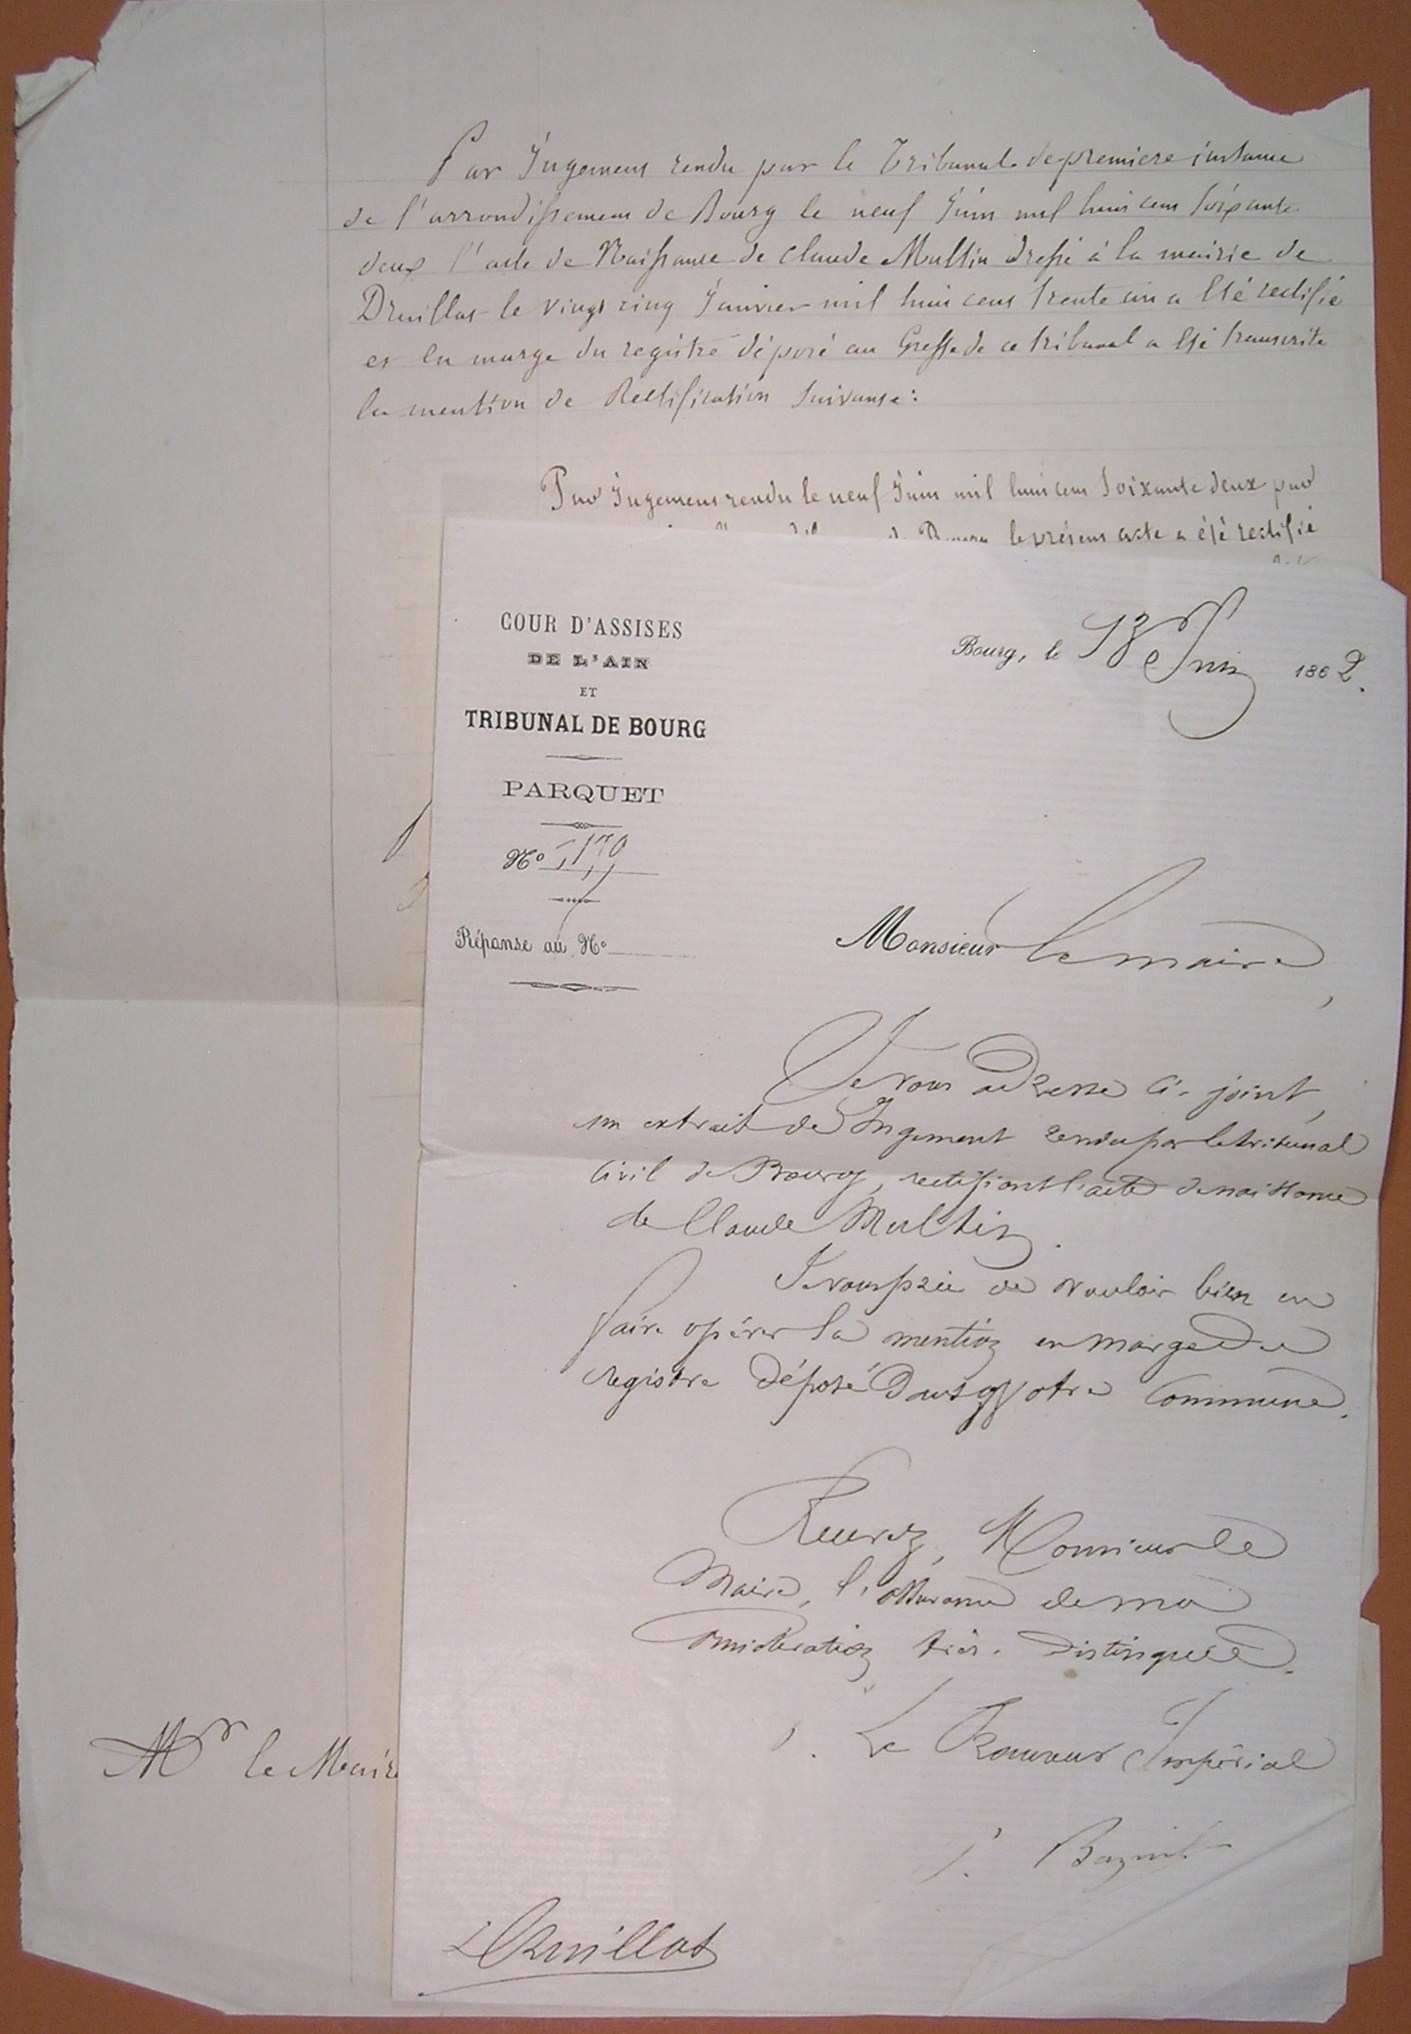 Par Jugement rendu par le Tribunal de premiere instance
de l'arrondissement de Bourg le neuf Juin mil huit cent soixante
deux l'acte de Naissance de Claude Multin dressé à la mairie de
Druillat le vingt cinq Janvier mil huit cent trente un a été rectifié
et en marge du registre déposé au Greffe de ce tribunal a été transcrite
la mention de Rectification suivante:
Par Jugement rendu le neuf Juin mil huit cent soixante deux par
de Bourg le présent acte a été rectifié
COUR D'ASSISES
DE L'AIN
ET
TRIBUNAL DE BOURG
PARQUET
Nº
Réponse au Nº
Bourg, le 13 Juin 1862.
Monsieur le maire,
Je vous adresse ci-joint,
un extrait de Jugement rendu par le tribunal
Civil de Bourg, rectifiant l'acte de naissance
de Claude Multin.
Je vous prie de vouloir bien en
faire opérer la mention en marge du
registre déposé dans votre Commune.
Recevez, Monsieur le
Maire, l'assurance de ma
considération très-distinguée.
Le Procureur Impérial
Mr le Maire
Druillat